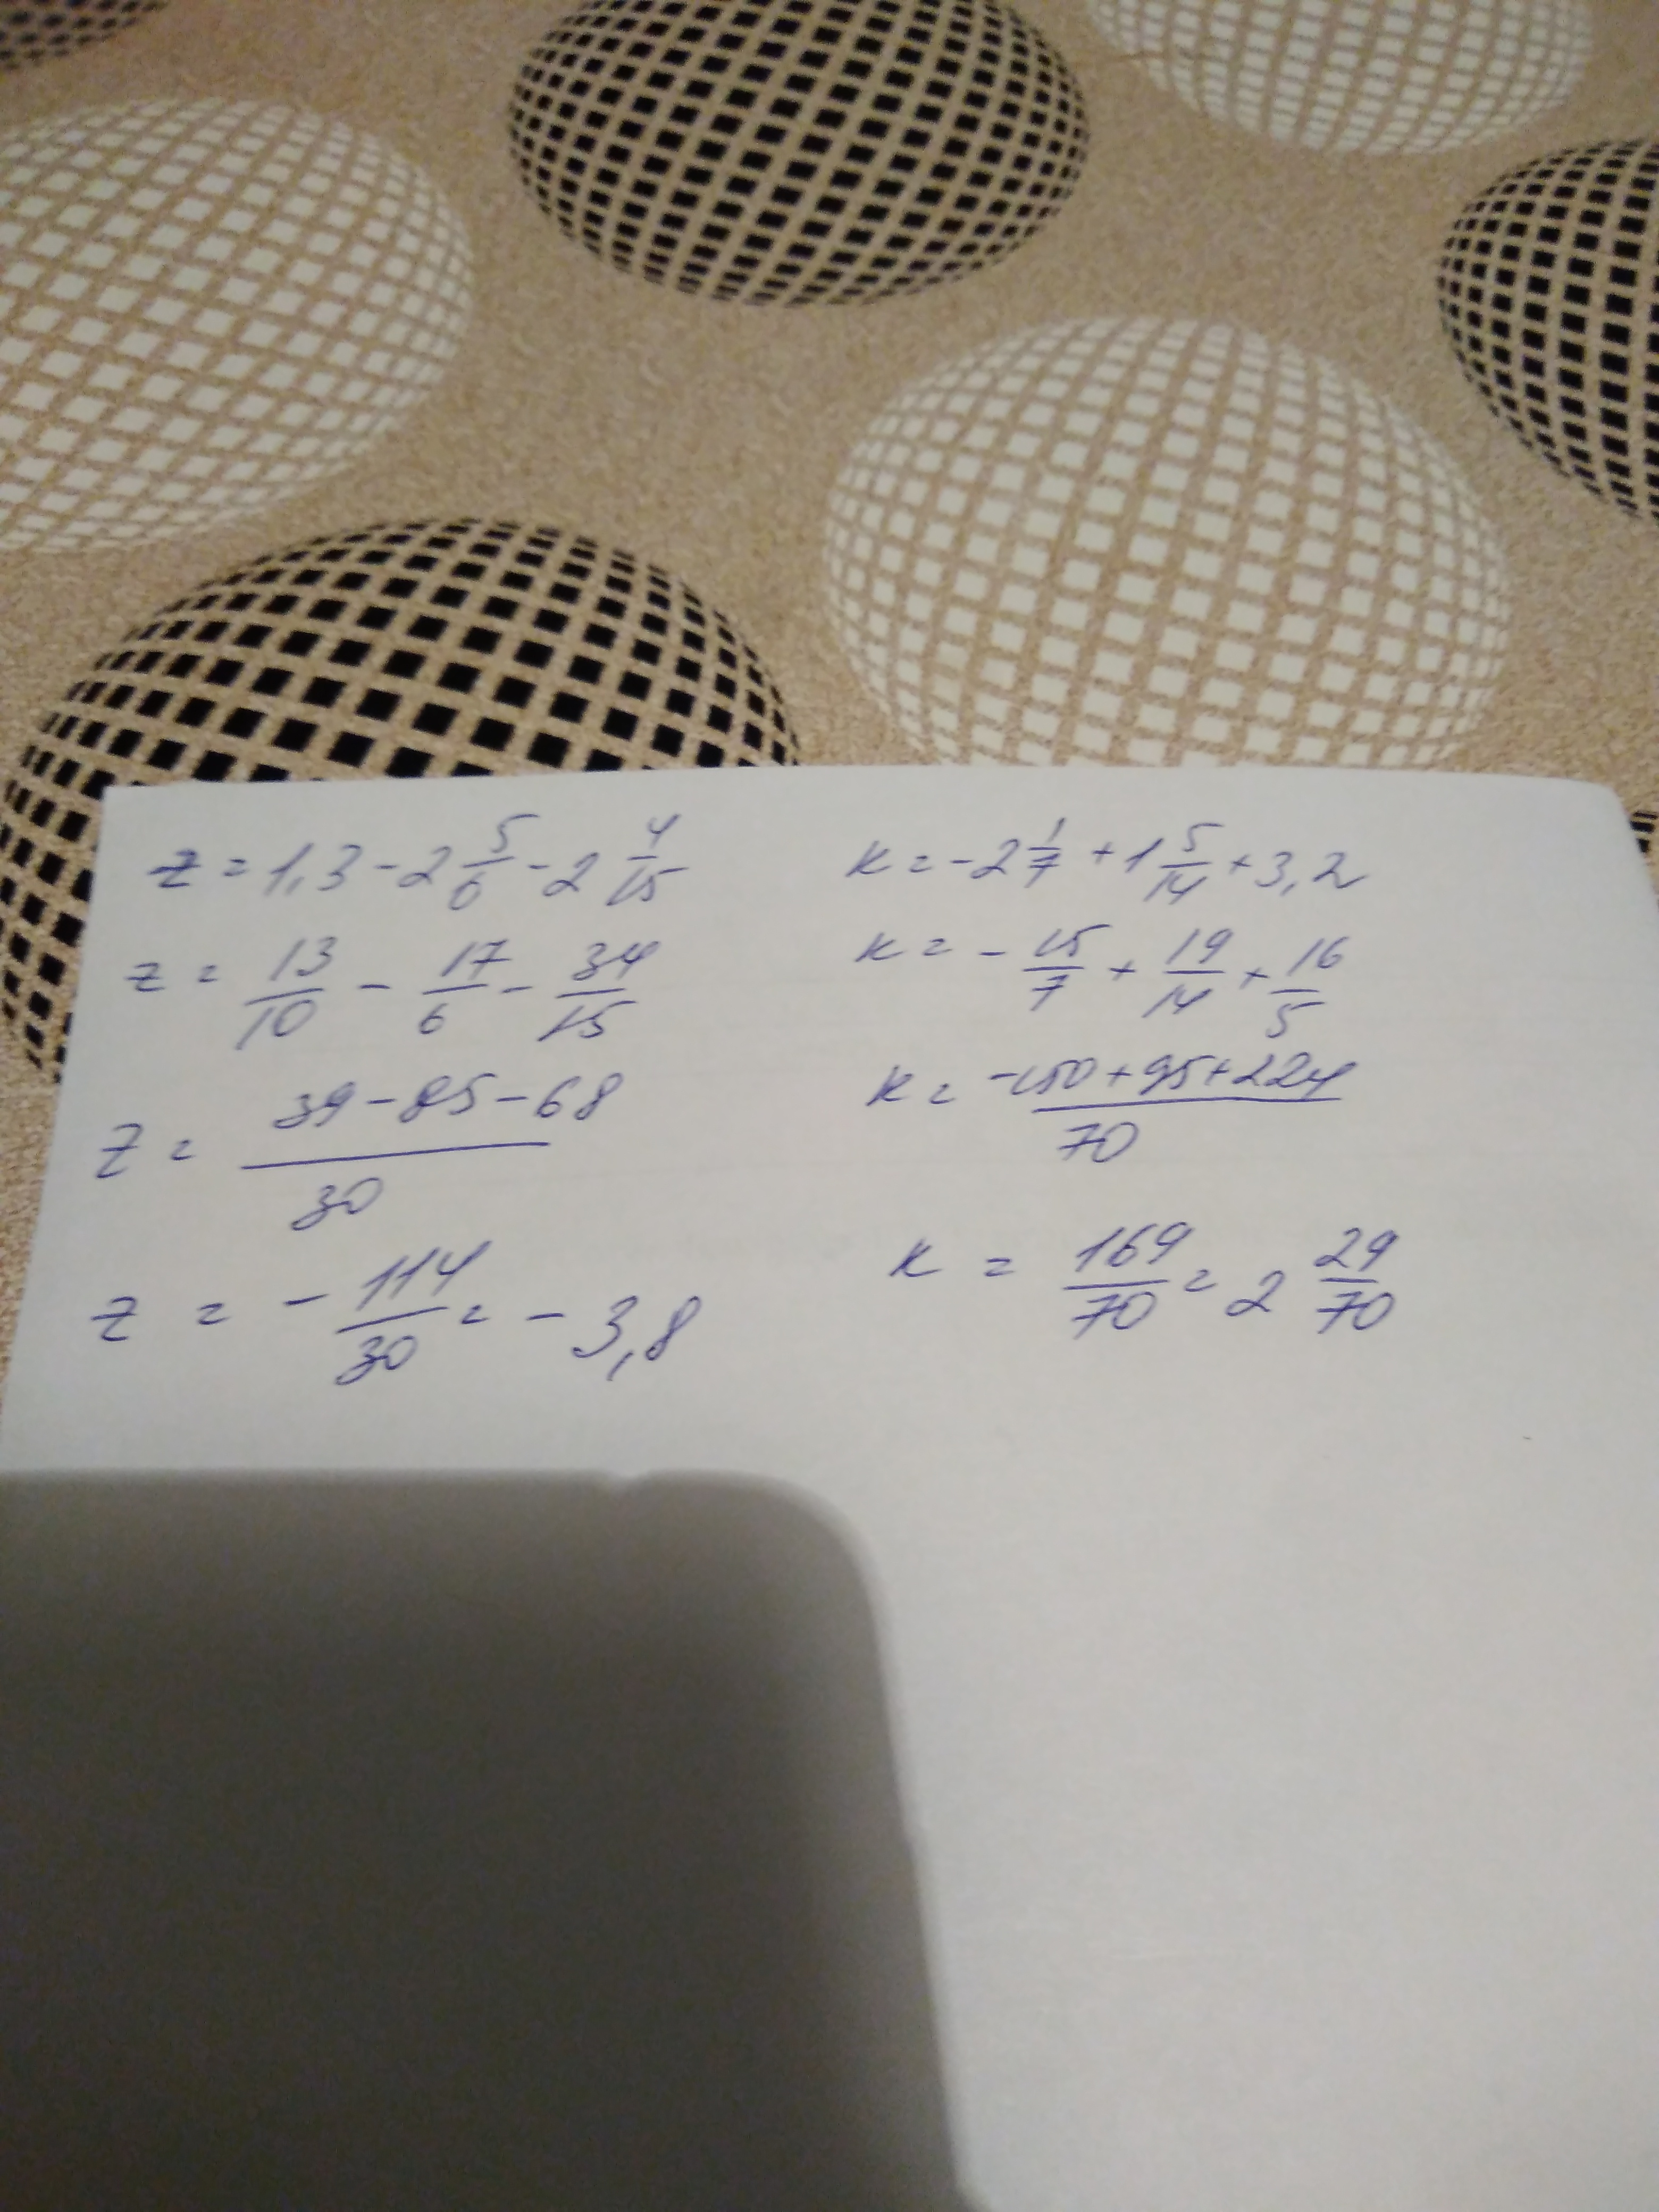 z = 1,3 - 2 5/6 - 2 4/15
z = 13/10 - 17/6 - 34/15
z = (39 - 85 - 68)/30
z = - 114/30 = - 3,8
к = - 2 1/7 + 1 5/14 + 3,2
к = - 15/7 + 19/14 + 16/5
к = (-150 + 95 + 224)/70
к = 169/70 = 2 29/70